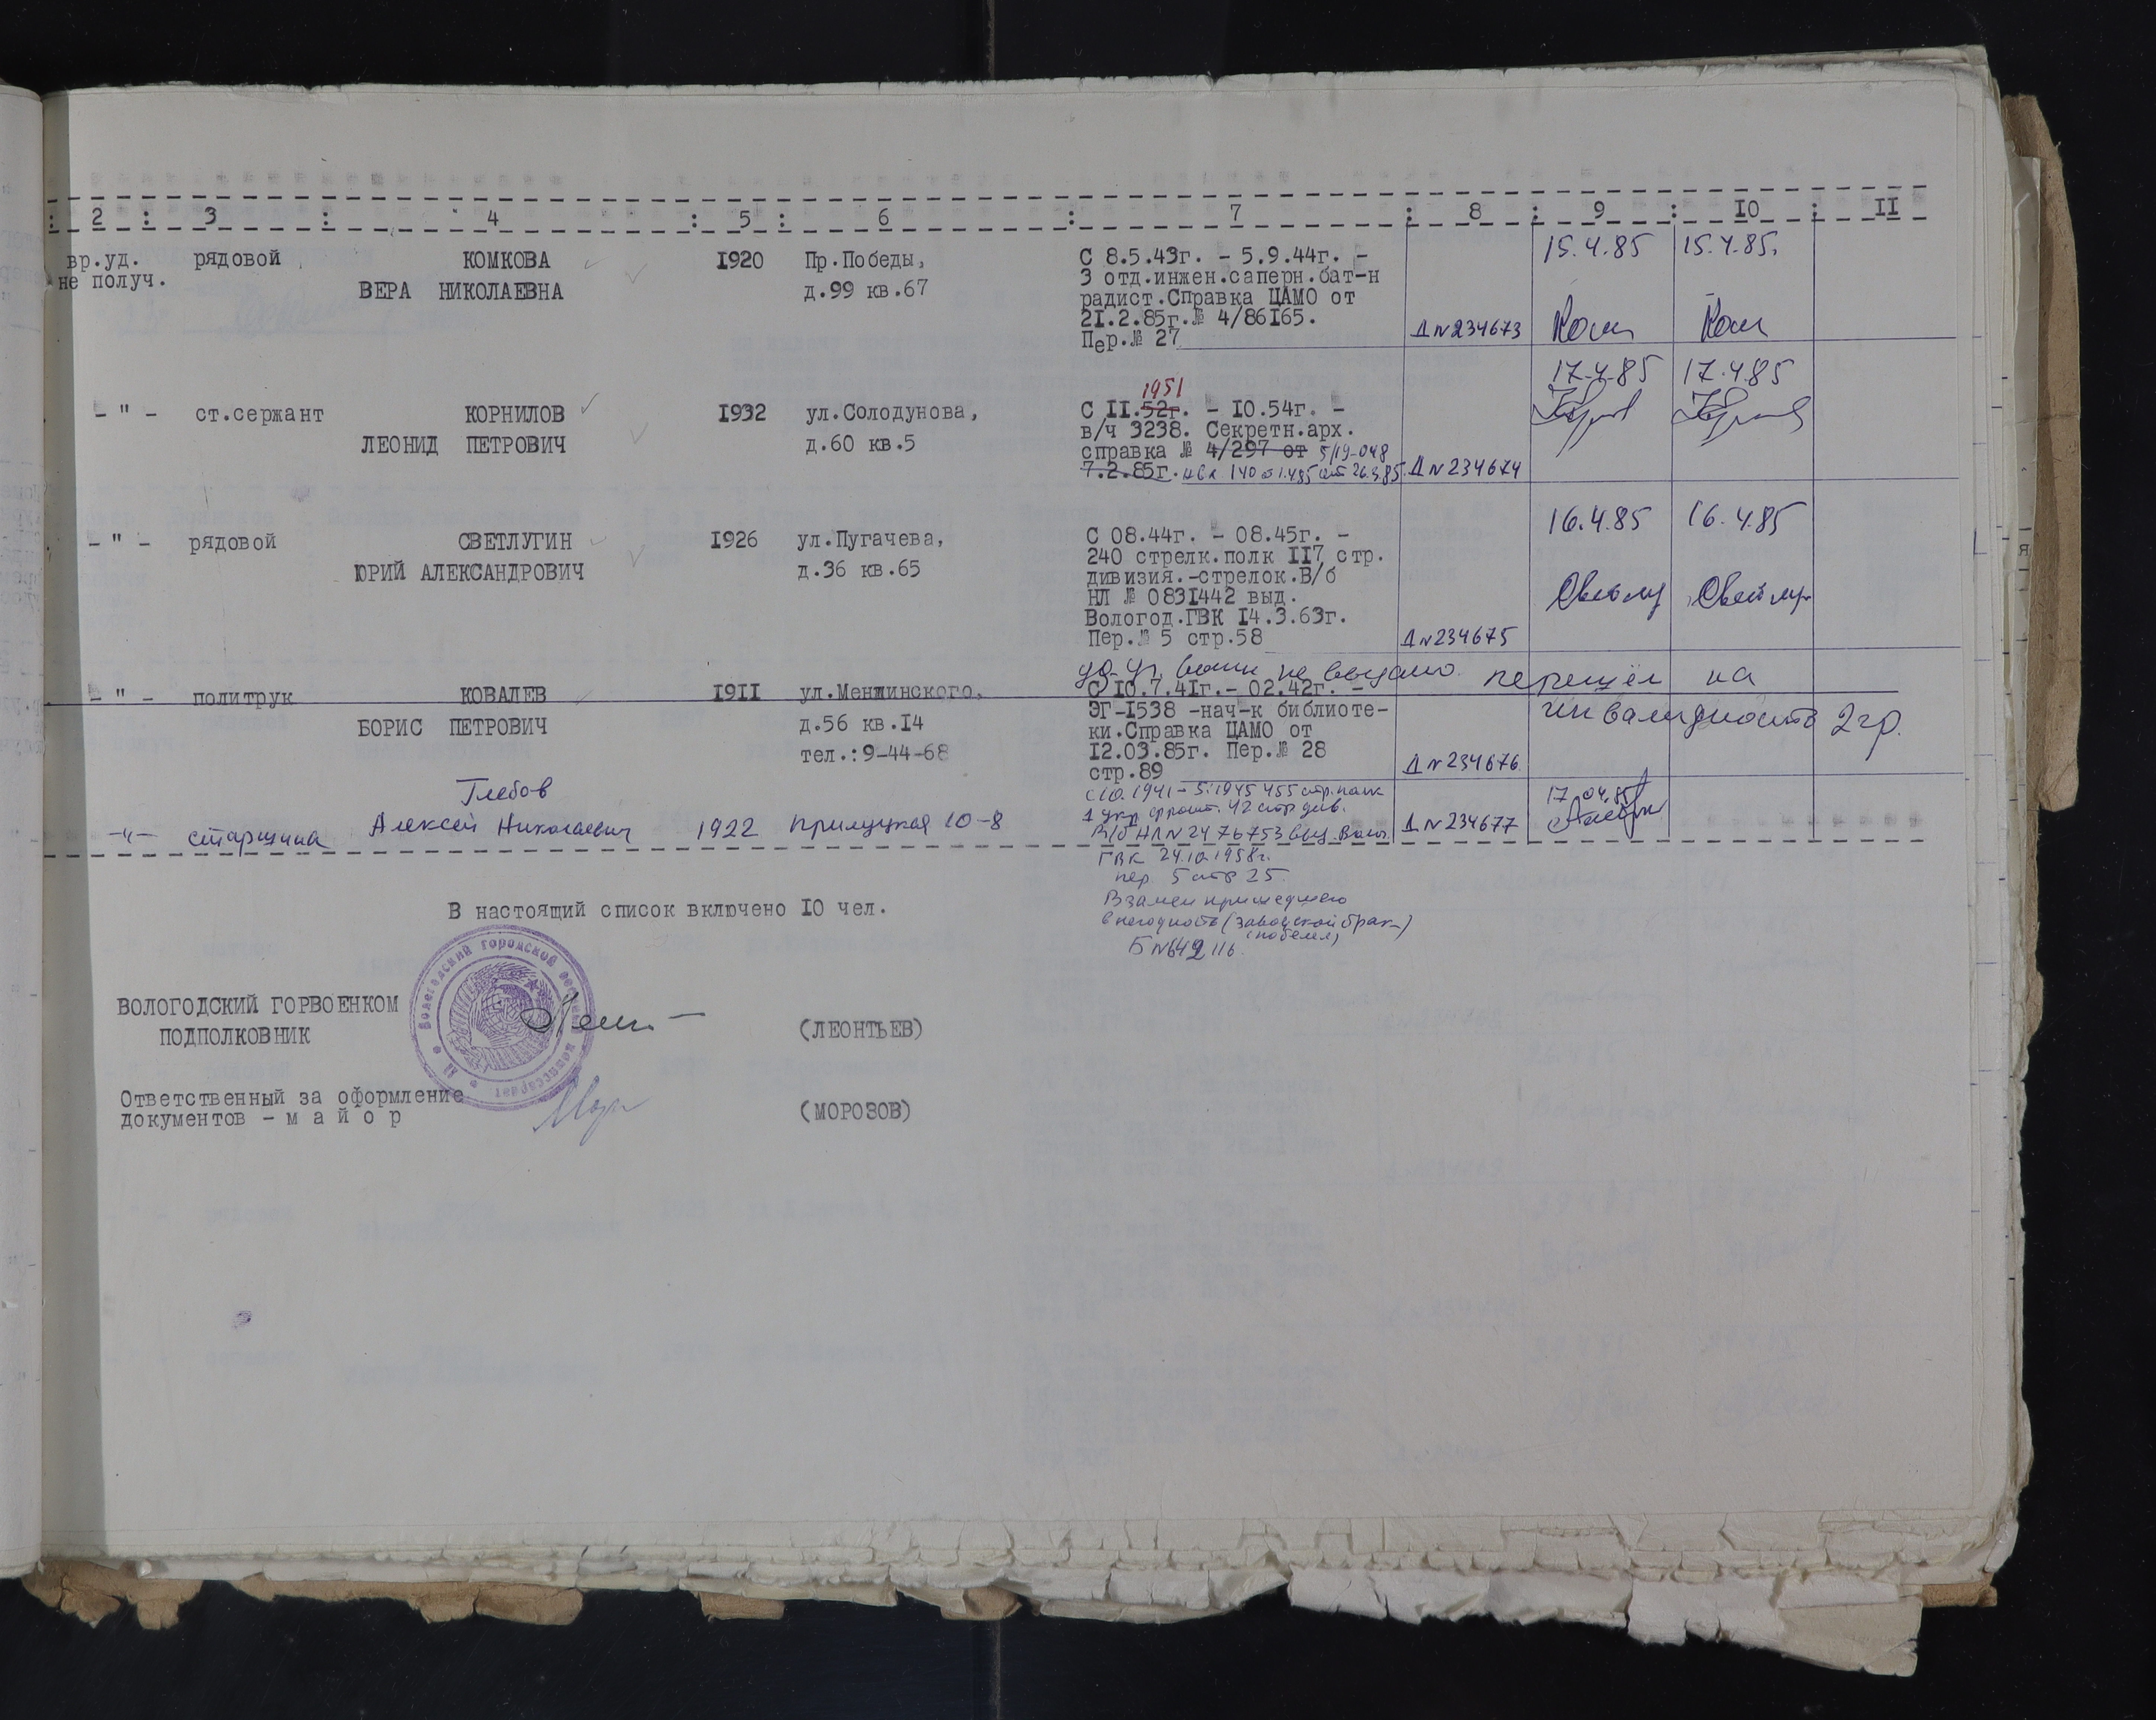 : 2 : 3 : 4 : 5 : 6 : 7 : 8 : 9 : 10 : II
вр.уд. рядовой КОМКОВА 1920 Пр.Победы, С 8.5.43г. - 5.9.44г. - 15.4.85 15.4.85.
не получ. ВЕРА НИКОЛАЕВНА д.99 кв.67 3 отд.инжен.саперн.бат-н
радист.Справка ЦАМО от
21.2.85г.№ 4/86165.
Пер.№ 27 Д№234673 Ком Ком
1951 17.4.85 17.4.85
- " - ст.сержант КОРНИЛОВ 1932 ул.Солодунова, С II.52г. - 10.54г. -
ЛЕОНИД ПЕТРОВИЧ д.60 кв.5 в/ч 3238. Секретн.арх.
справка № 4/297 от 5/19-048
7.2.85г. от 26.3.85 Д№234674
16.4.85 16.4.85
- " - рядовой СВЕТЛУГИН 1926 ул.Пугачева, С 08.44г. - 08.45г. -
ЮРИЙ АЛЕКСАНДРОВИЧ д.36 кв.65 240 стрелк.полк II7 стр.
дивизия.-стрелок.В/б
НЛ № 0831442 выд.
Вологод.ГВК 14.3.63г.
Пер.№ 5 стр.58 Д№234675
не выдано. перешёл на
- " - политрук КОВАЛЕВ 1911 ул.Менжинского, С 10.7.41г.- 02.42г. -
БОРИС ПЕТРОВИЧ д.56 кв.14 ЭГ-1538 -нач-к библиоте- инвалидность 2 гр.
тел.:9-44-68 ки.Справка ЦАМО от
12.03.85г. Пер.№ 28
стр.89 Д№234676
Глебов с 10.1941 - 5.1945 455 стр.полк 17.04.85
-"- старшина Алексей Николаевич 1922 Прилуцкая 10-8 1 Укр фронт. 42 стр див.
В/б НЛ№2476753 выд. Волог. Д№234677
ГВК 24.10.1958г.
пер. 5 стр 25
Взамен пришедшего
в негодность (заводской брак)
Б№642116.
В настоящий список включено 10 чел.
Вологодский городской военный комиссариат
ВОЛОГОДСКИЙ ГОРВОЕНКОМ
ПОДПОЛКОВНИК (ЛЕОНТЬЕВ)
Ответственный за оформление
документов - м а й о р (МОРОЗОВ)